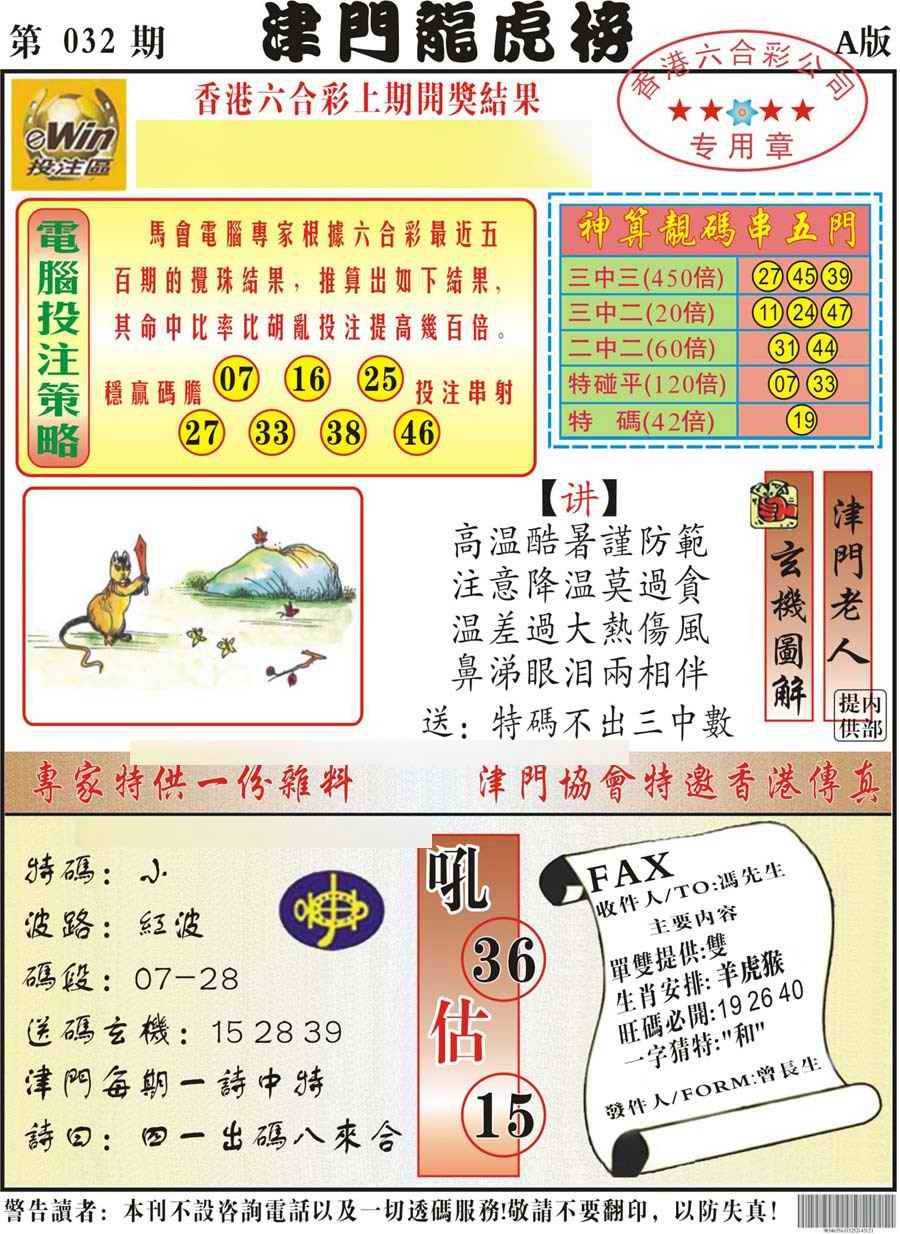 第 032 期
津門龍虎榜
A版
香港六合彩公司
专用章
eWin
投注區
香港六合彩上期開獎結果
電腦投注策略
馬會電腦專家根據六合彩最近五
百期的攪珠結果，推算出如下結果，
其命中比率比胡亂投注提高幾百倍。
穩贏碼膽 07 16 25 投注串射
27 33 38 46
神算靚碼串五門
三中三(450倍) 27 45 39
三中二(20倍) 11 24 47
二中二(60倍) 31 44
特碰平(120倍) 07 33
特 碼(42倍) 19
【讲】
高温酷暑謹防範
注意降温莫過貪
温差過大熱傷風
鼻涕眼泪兩相伴
送：特碼不出三中數
玄機圖解
津門老人
内部提供
專家特供一份雜料
津門協會特邀香港傳真
特碼：小
波路：紅波
碼段：07-28
送碼玄機：15 28 39
津門每期一詩中特
詩曰：四一出碼八來合
吼
36
估
15
FAX
收件人/TO:馮先生
主要内容
單雙提供:雙
生肖安排:羊虎猴
旺碼必開:19 26 40
一字猜特:"和"
發件人/FORM:曾長生
警告讀者：本刊不設咨詢電話以及一切透碼服務!敬請不要翻印，以防失真！